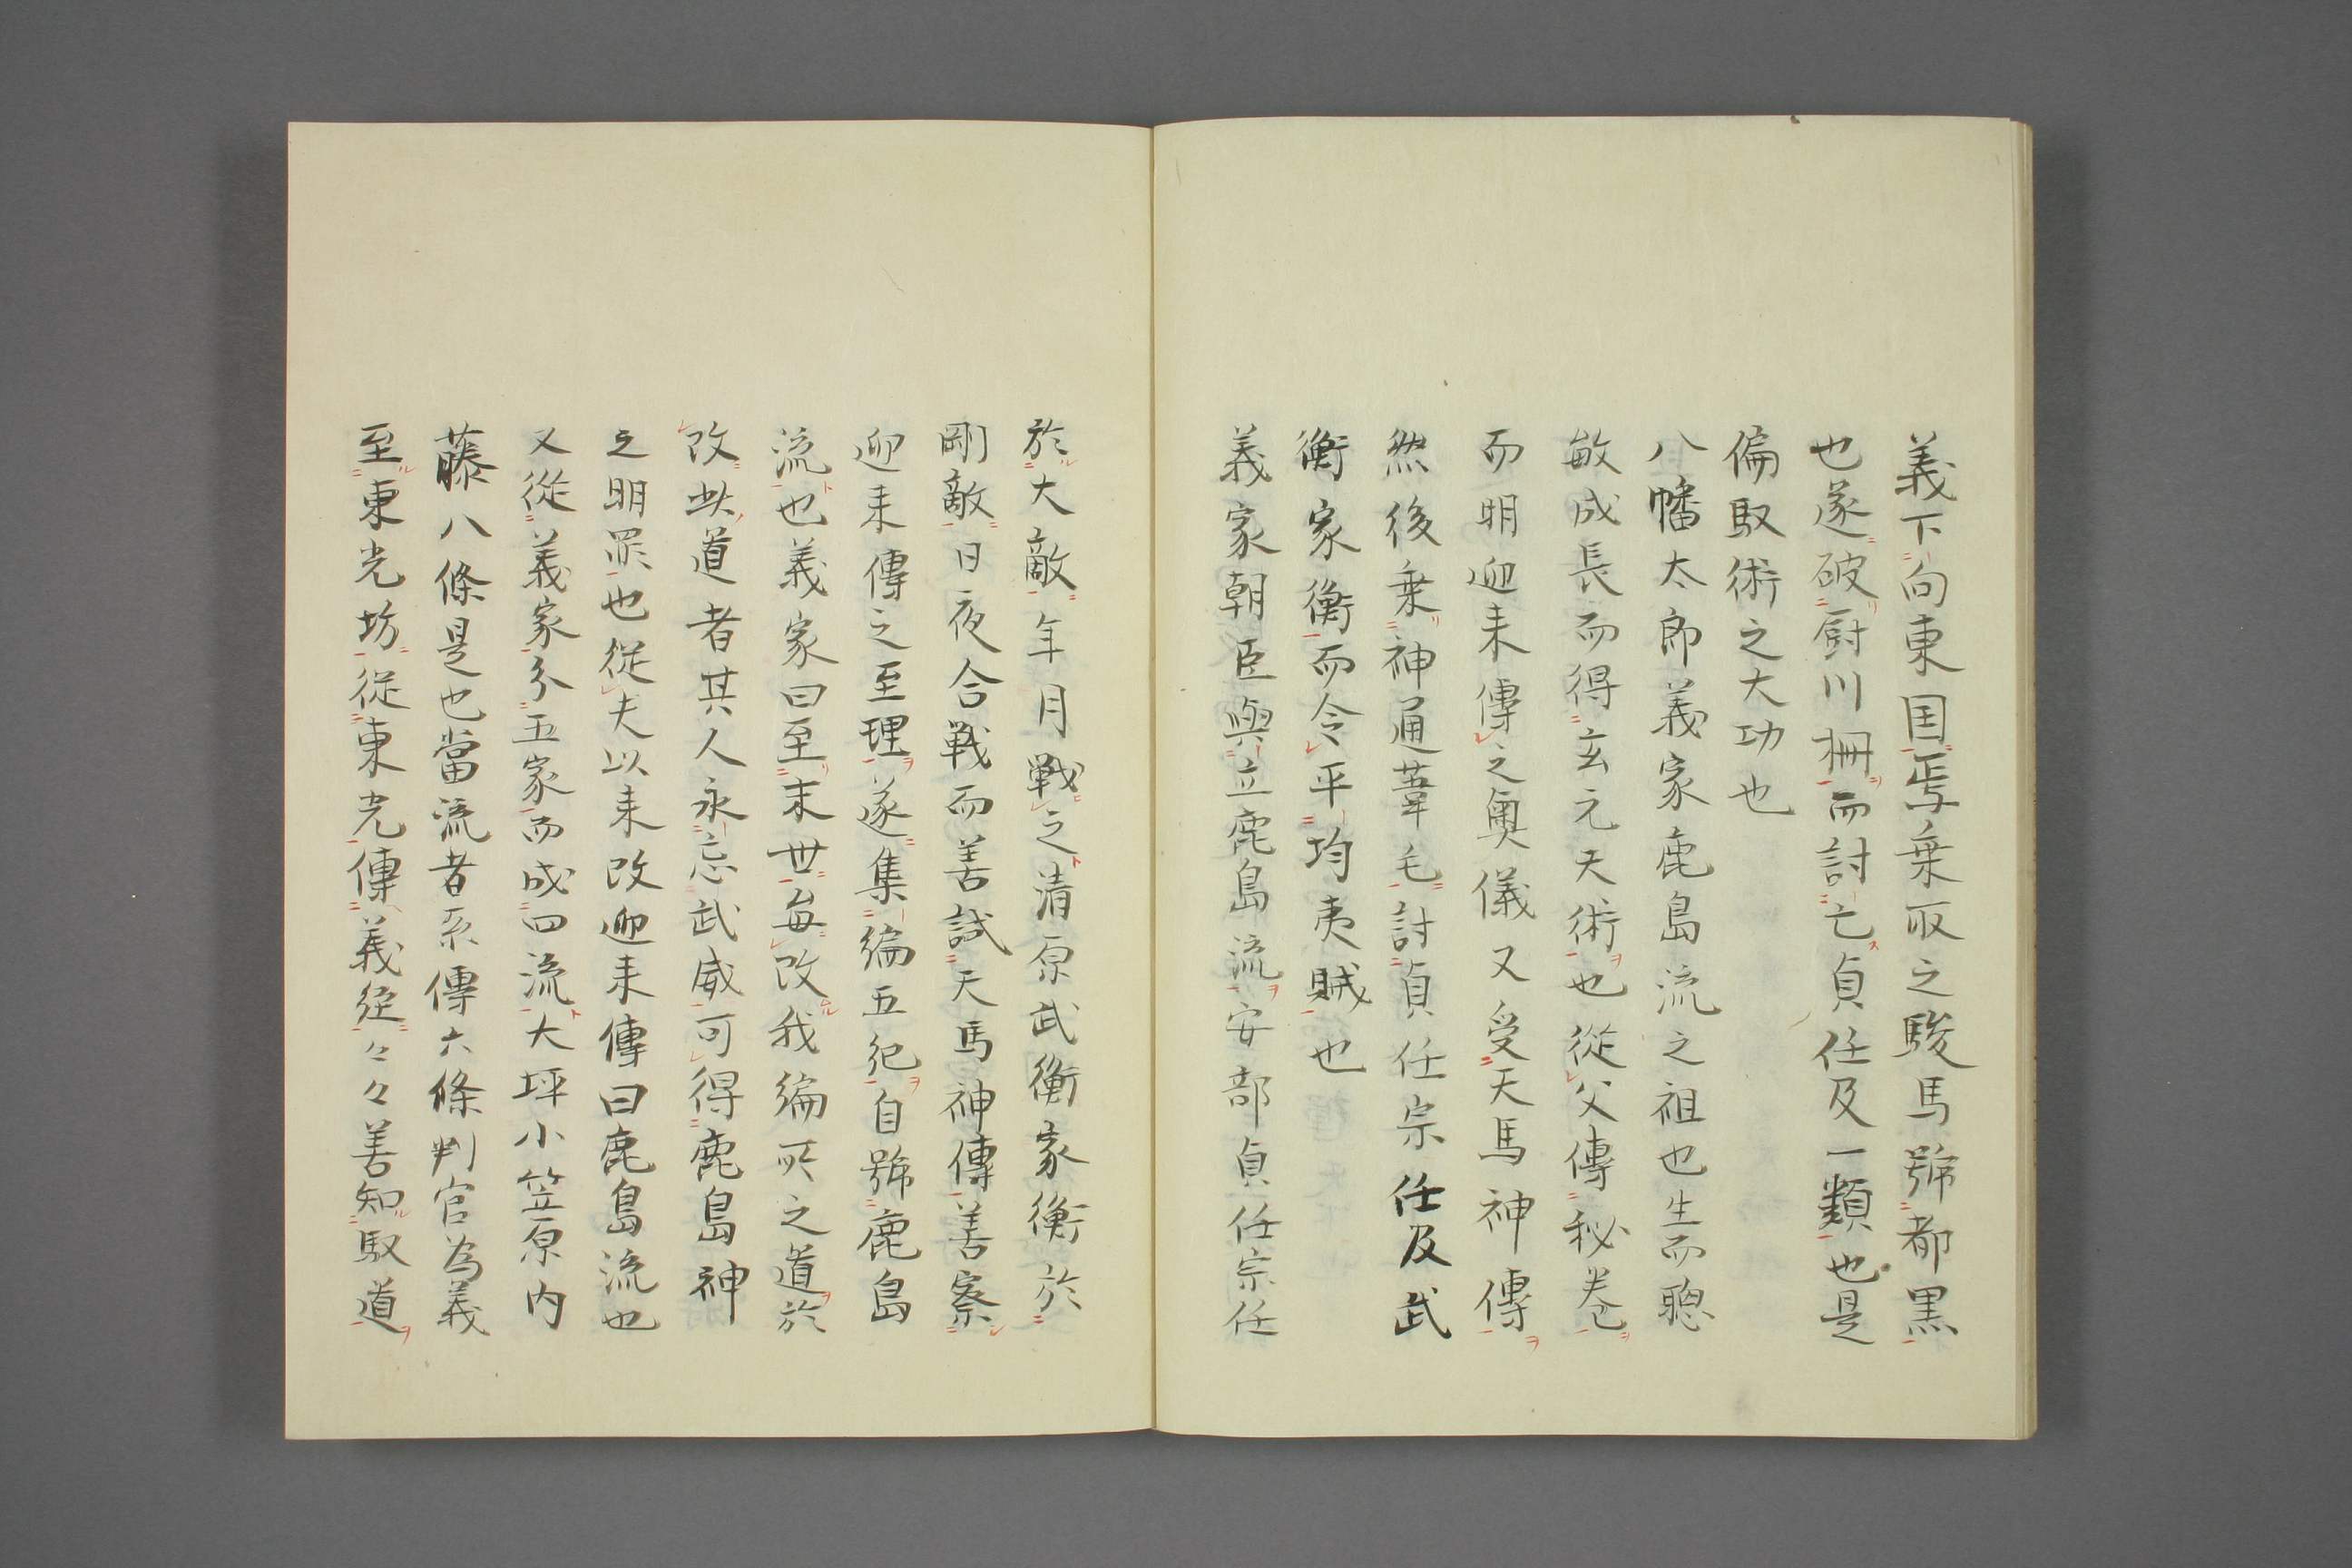 義下向東国焉乗取之駿馬號都黒
也遂破厨川柵而討亡貞任及一類也是
偏馭術之大功也
八幡太郎義家鹿島流之祖也生而聰
敏成長而得玄元天術也従父傳秘巻
而明迎来傳之奥儀又受天馬神傳
然後乗神通葦毛討貞任宗任及武
衡家衡而令平均夷賊也
義家朝臣與立鹿島流安部貞任宗任
於大敵年月戦之清原武衡家衡於
剛敵日夜合戦而善試天馬神傳善察
迎来傳之至理遂集編五紀自號鹿島
流也義家曰至末世毎改我編所之道於
改此道者其人永忘武威可得鹿島神
之明罪也従夫以来改迎来傳曰鹿島流也
又従義家分五家而成四流大坪小笠原内
藤八條是也當流者系傳六條判官為義
至東光坊従東光傳義経々々善知馭道